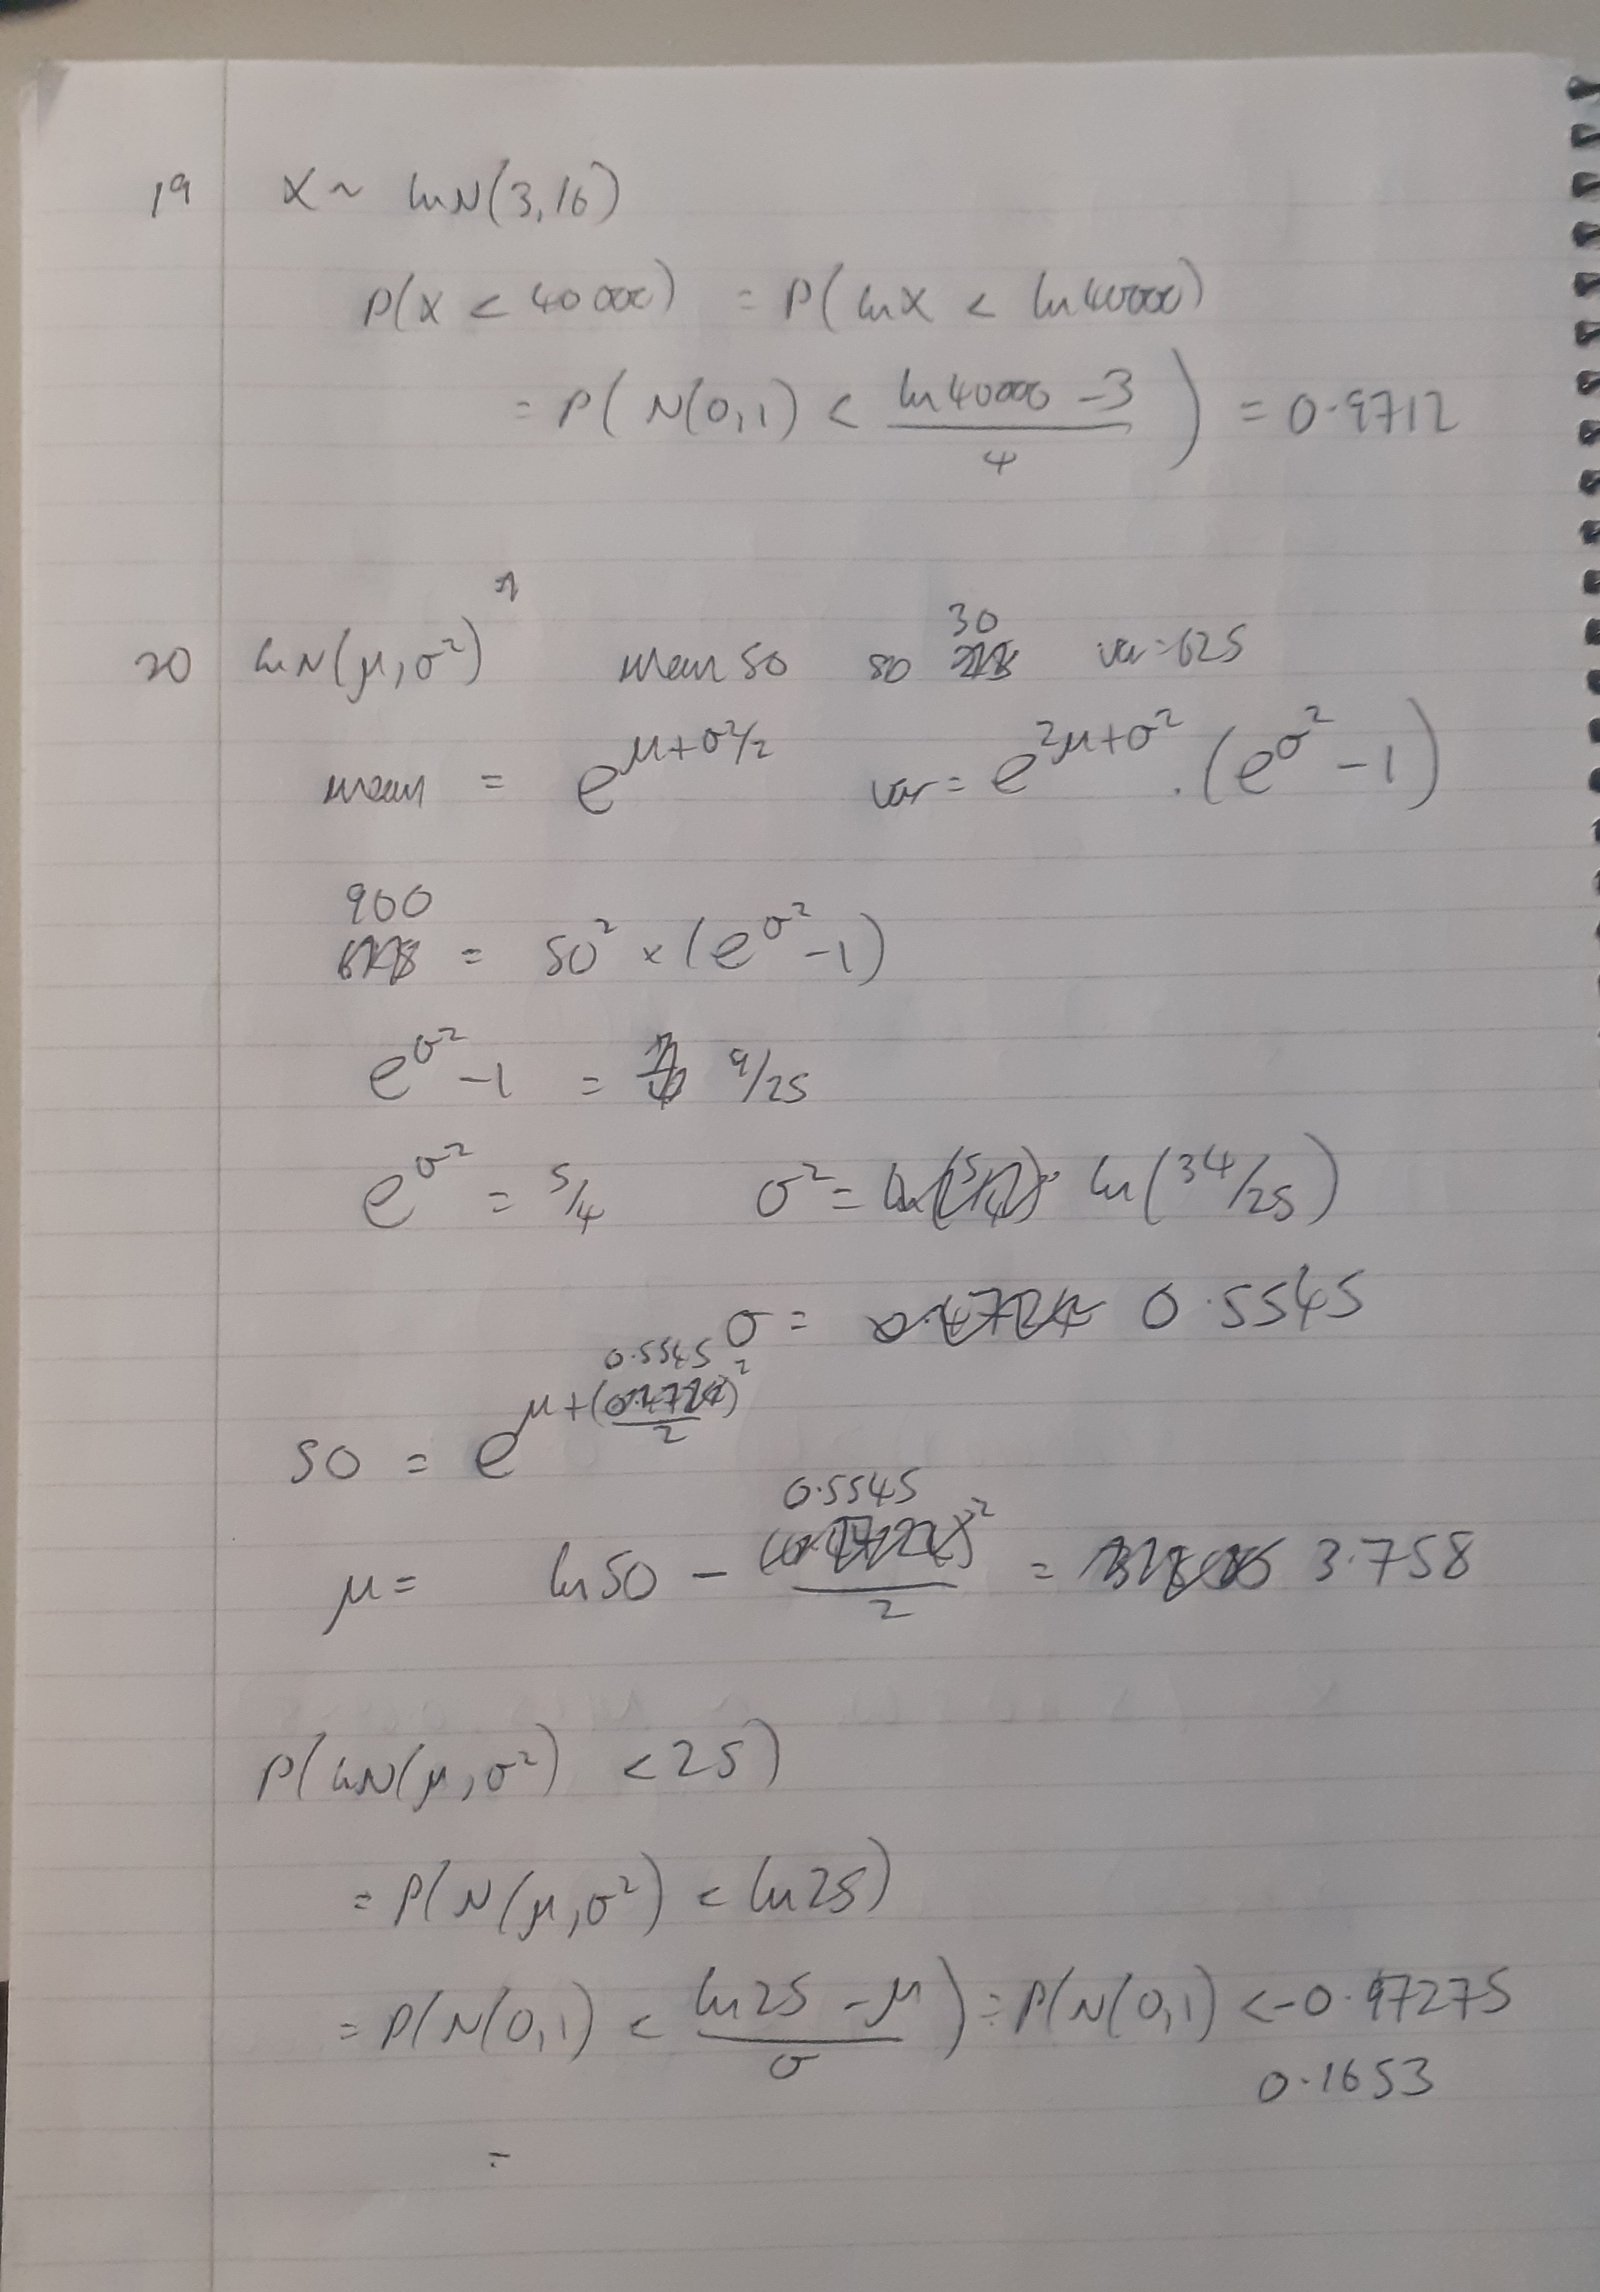 19 X ~ lnN(3,16)
P(X < 40000) = P(lnX < ln40000)
= P( N(0,1) < (ln40000 - 3)/4 ) = 0.9712
20 lnN(μ,σ²) mean 50 SD 30 var=625
mean = e^(μ+σ²/2) var = e^(2μ+σ²) . (e^(σ²) - 1)
900 = 50² × (e^(σ²) - 1)
e^(σ²) - 1 = 9/25
e^(σ²) = 5/4 σ² = ln(5/4) ln(34/25)
σ = 0.4724 0.5545
50 = e^(μ+(0.5545)²/2)
μ = ln50 - (0.5545)²/2 = 3.758
P(lnN(μ,σ²) < 25)
= P(N(μ,σ²) < ln25)
= P(N(0,1) < (ln25 - μ)/σ) = P(N(0,1) < -0.97275
0.1653
=